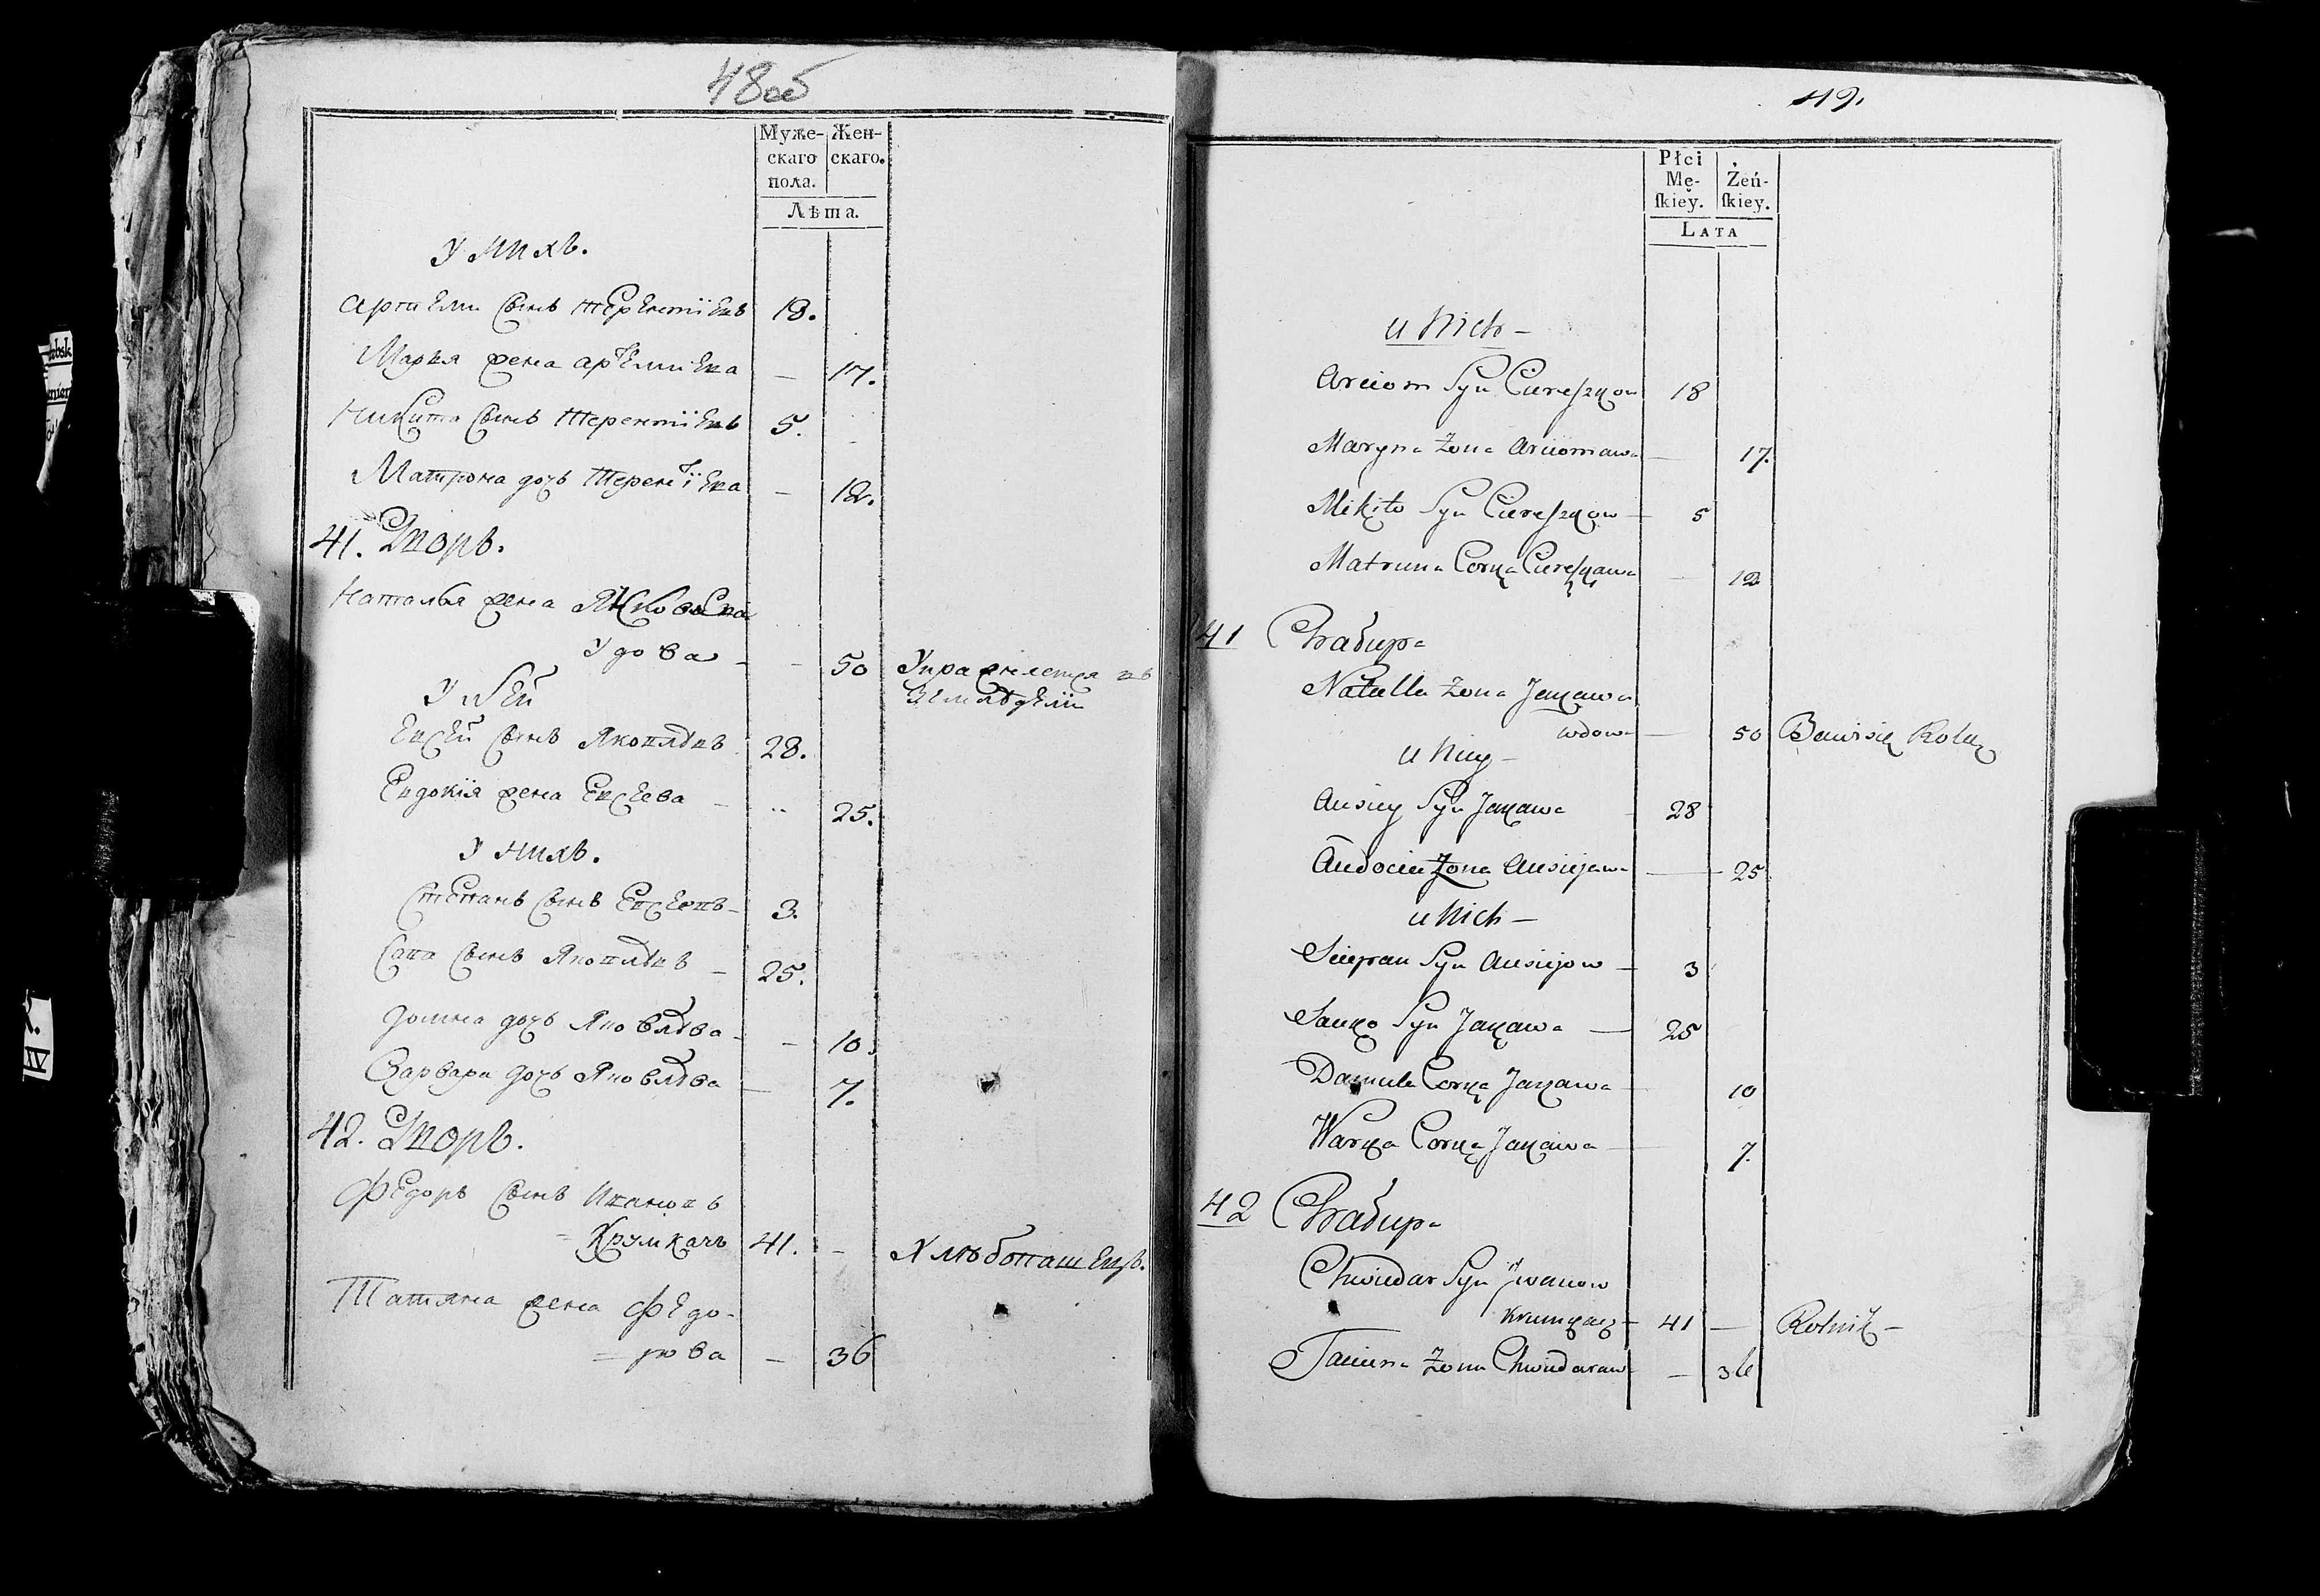 48об
Муже- Жен-
скаго скаго.
пола.
Лѣта.
У нихъ.
Артиеми сынъ Терентіевъ 18.
Марья жена Артемиева — 17.
Никита сынъ Терентіевъ 5.
Матрона дочь Терентіева — 12.
41. Дворъ.
Наталья жена Яковлева
удова — 50 Упражнается въ
У ней Земледелiи
Евсей сынъ Яковлевъ 28.
Евдокія жена Евсеева — 25.
У нихъ.
Степанъ сынъ Евсеевъ — 3.
Сапа сынъ Яковлѣвъ — 25.
Домна дочь Яковлѣва — 10.
Варвара дочь Яковлѣва — 7.
42. Дворъ.
Федоръ сынъ Ивановъ
Крумкачъ 41. — Хлѣбопашецъ.
Татяна жена Федо-
рова — 36
49.
Płci
Mę- Żeń-
skiey. skiey.
LATA
u Nich —
Arciom Syn Ciereszkow 18
Maryna Żona Arciomawa — 17.
Mikito Syn Ciereszkow — 5
Matruna Corka Ciereszkawa — 12
41 Chałupa
Natalla Żona Jakawa
wdowa — 50 Bawi się Rolą
u Niey —
Ausiey Syn Jakawa 28
Audocia Żona Ausiejawa — 25
u Nich —
Sciepan Syn Ausiejow — 3
Sauko Syn Jakawa — 25
Damula Corka Jakawa — 10
Warka Corka Jakawa — 7.
42 Chałupa
Chwiedar Syn Jwanow
Krumkacz — 41 — Rolnik —
Taciana Żona Chwiedarawa — 36